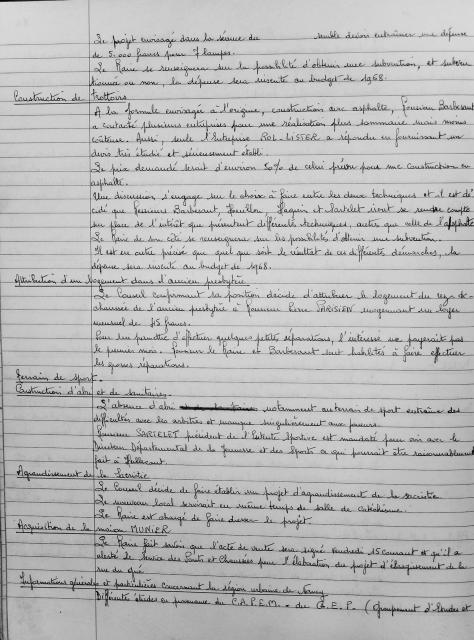 Le projet envisagé dans la séance du semble devoir entraîner une dépense
de 5.000 francs pour 7 lampes.
Le Maire se renseignera sur la possibilité d'obtenir une subvention, et subven
tionnée ou non, la dépense sera inscrite au budget de 1968.
Construction de Trottoirs
A la formule envisagée à l'origine, construction avec asphalte, Monsieur Barberant
a contacté plusieurs entreprises pour une réalisation plus sommaire mais moins
coûteuse. Aussi, seule l'Entreprise ROL-LISTER a répondu en fournissant un
devis très étudié et sérieusement établi.
Le prix demandé serait d'environ 50% de celui prévu pour une construction en
asphalte.
Une discussion s'engage sur le choix à faire entre les deux techniques et il est dé
cidé que Messieurs Barberant, et Sartelet iront se rendre compte
sur place de l'intérêt que présentent différentes techniques, autres que celle de l'asphalte
Le Maire de son côté se renseignera sur les possibilités d'obtenir une subvention.
Il est en outre précisé que quel que soit le résultat de ces différentes démarches, la
dépense sera inscrite au budget de 1968.
Attribution d'un logement dans l'ancien presbytère
Le Conseil confirmant sa position décide d'attribuer le logement du rez de
chaussée de l'ancien presbytère à Monsieur Pierre PARISIEN moyennant un loyer
mensuel de 75 francs.
Pour lui permettre d'effectuer quelques petites réparations, l'intéressé ne payerait pas
le premier mois. Monsieur le Maire et Barberant sont habilités à faire effectuer
les grosses réparations.
Terrain de sport.
Construction d'abri et de sanitaires.
L'absence d'abri notamment au terrain de sport entraîne des
difficultés avec les arbitres et manque singulièrement aux joueurs.
Monsieur SARTELET président de l'Entente Sportive est mandaté pour voir avec le
Directeur Départemental de la Jeunesse et des Sports ce qui pourrait être raisonnablement
fait à
Agrandissement de la Sacristie
Le Conseil décide de faire établir un projet d'agrandissement de la sacristie.
Le nouveau local servirait en même temps de salle de catéchisme.
Le Maire est chargé de faire dresser le projet.
Acquisition de la maison MUNIER
Le Maire fait savoir que l'acte de vente sera signé vendredi 15 courant et qu'il a
alerté le Service des Ponts et Chaussées pour l'élaboration du projet d'élargissement de la
rue du gué
Informations générales et particulières concernant la région urbaine de Nancy
Différentes études en panorama du C.A.P.E.M. - du G.E.P. (Groupement d'Etudes et